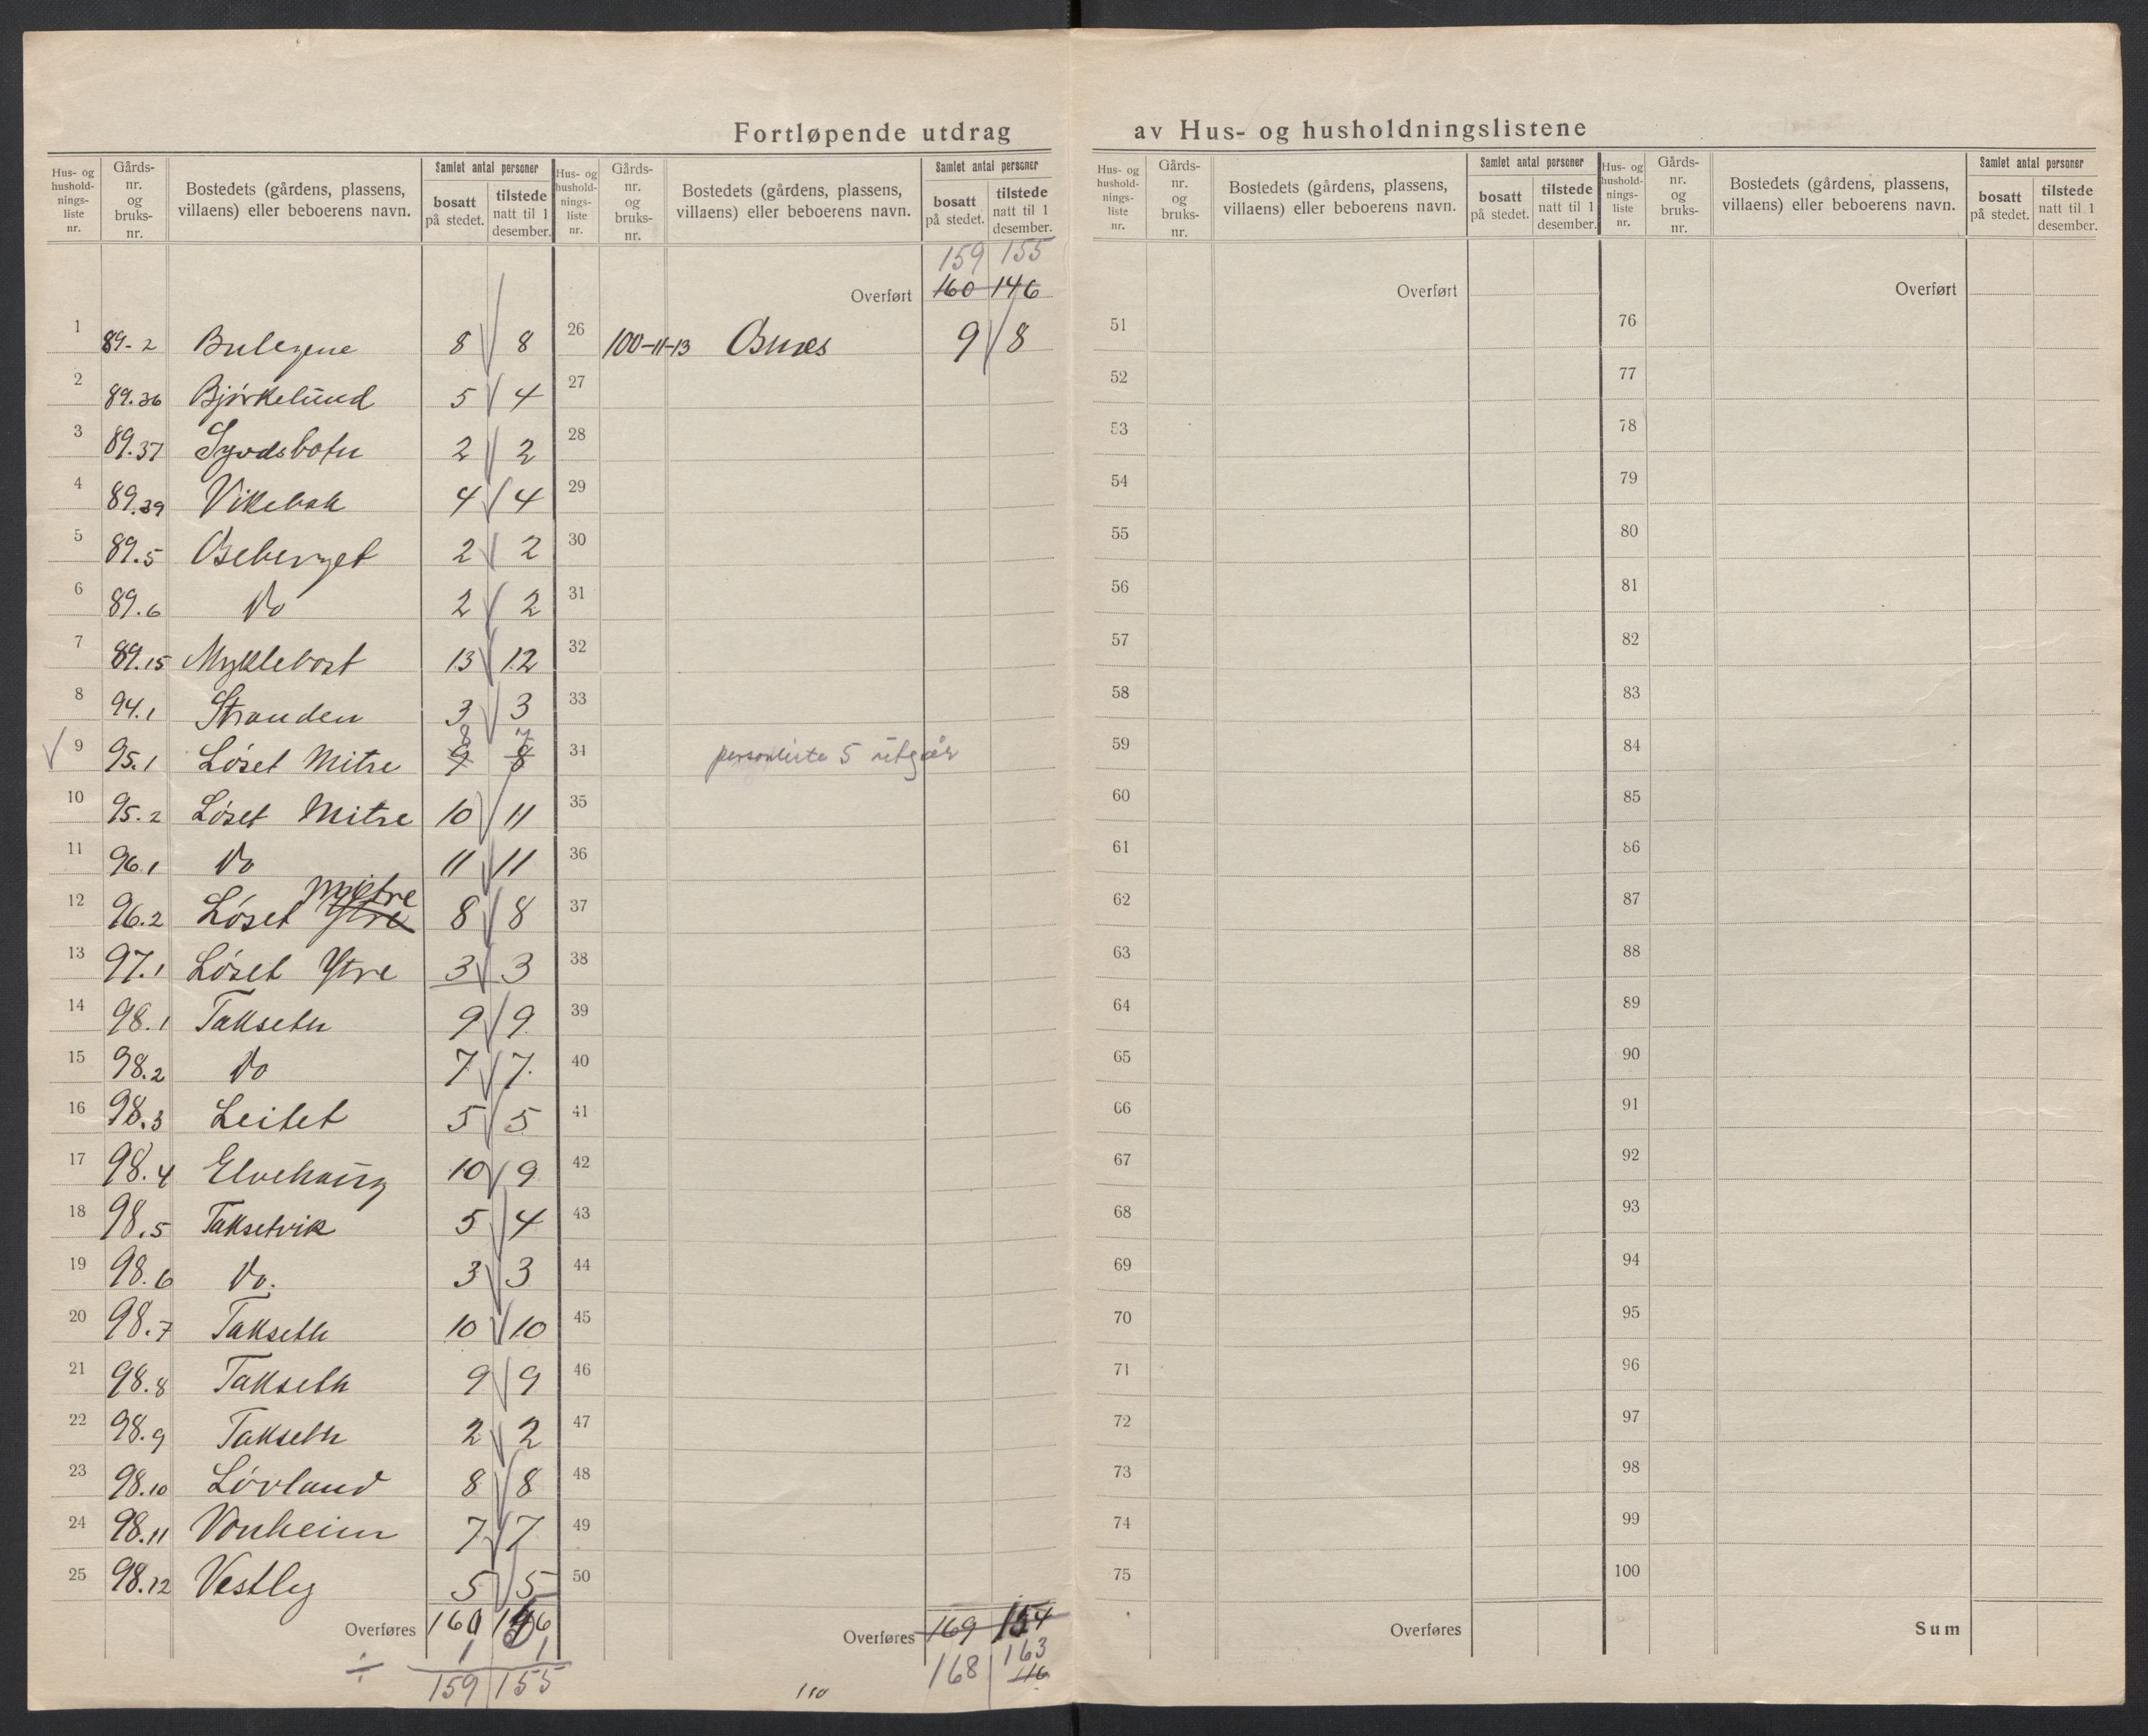 Fortløpende utdrag av Hus- og husholdningslistene
Hus- og hushold-nings-liste nr. Gårds-nr. og bruks-nr. Bostedets (gårdens, plassens, villaens) eller beboerens navn. Samlet antal personer bosatt på stedet. tilstede natt til 1 desember.
1 89-2 8 8
2 89.36 Bjørkelund 5 4
3 89.37 Syvdsbotn 2 2
4 89.39 Vikebak 4 4
5 89.5 Oseberget 2 2
6 89.6 Do 2 2
7 89.15 Myklebost 13 12
8 94.1 Stranden 3 3
8 7
9 95.1 Løset Mitre 9 8
10 95.2 Løset Mitre 10 11
11 96.1 Do 11 11
Mitre
12 96.2 Løset Ytre 8 8
13 97.1 Løset Ytre 3 3
14 98.1 Takseth 9 9
15 98.2 Do 7 7
16 98.3 Leitet 5 5
17 98.4 Elvehaug 10 9
18 98.5 Taksetvik 5 4
19 98.6 Do. 3 3
20 98.7 Takseth 10 10
21 98.8 Takseth 9 9
22 98.9 Takseth 2 2
23 98.10 Løvland 8 8
24 98.11 Vonheim 7 7
25 98.12 Vestly 5 5
Overføres 160 156
÷ 1 1
159 155
Hus- og hushold-nings-liste nr. Gårds-nr. og bruks-nr. Bostedets (gårdens, plassens, villaens) eller beboerens navn. Samlet antal personer bosatt på stedet. tilstede natt til 1 desember.
159 155
Overført 160 146
26 100-11-13 9 8
27
28
29
30
31
32
33
34 personliste 5 utgår
35
36
37
38
39
40
41
42
43
44
45
46
47
48
49
50
Overføres 169 154
163
168 116
110
Hus- og hushold-nings-liste nr. Gårds-nr. og bruks-nr. Bostedets (gårdens, plassens, villaens) eller beboerens navn. Samlet antal personer bosatt på stedet. tilstede natt til 1 desember.
Overført
51
52
53
54
55
56
57
58
59
60
61
62
63
64
65
66
67
68
69
70
71
72
73
74
75
Overføres
Hus- og hushold-nings-liste nr. Gårds-nr. og bruks-nr. Bostedets (gårdens, plassens, villaens) eller beboerens navn. Samlet antal personer bosatt på stedet. tilstede natt til 1 desember.
Overført
76
77
78
79
80
81
82
83
84
85
86
87
88
89
90
91
92
93
94
95
96
97
98
99
100
Sum